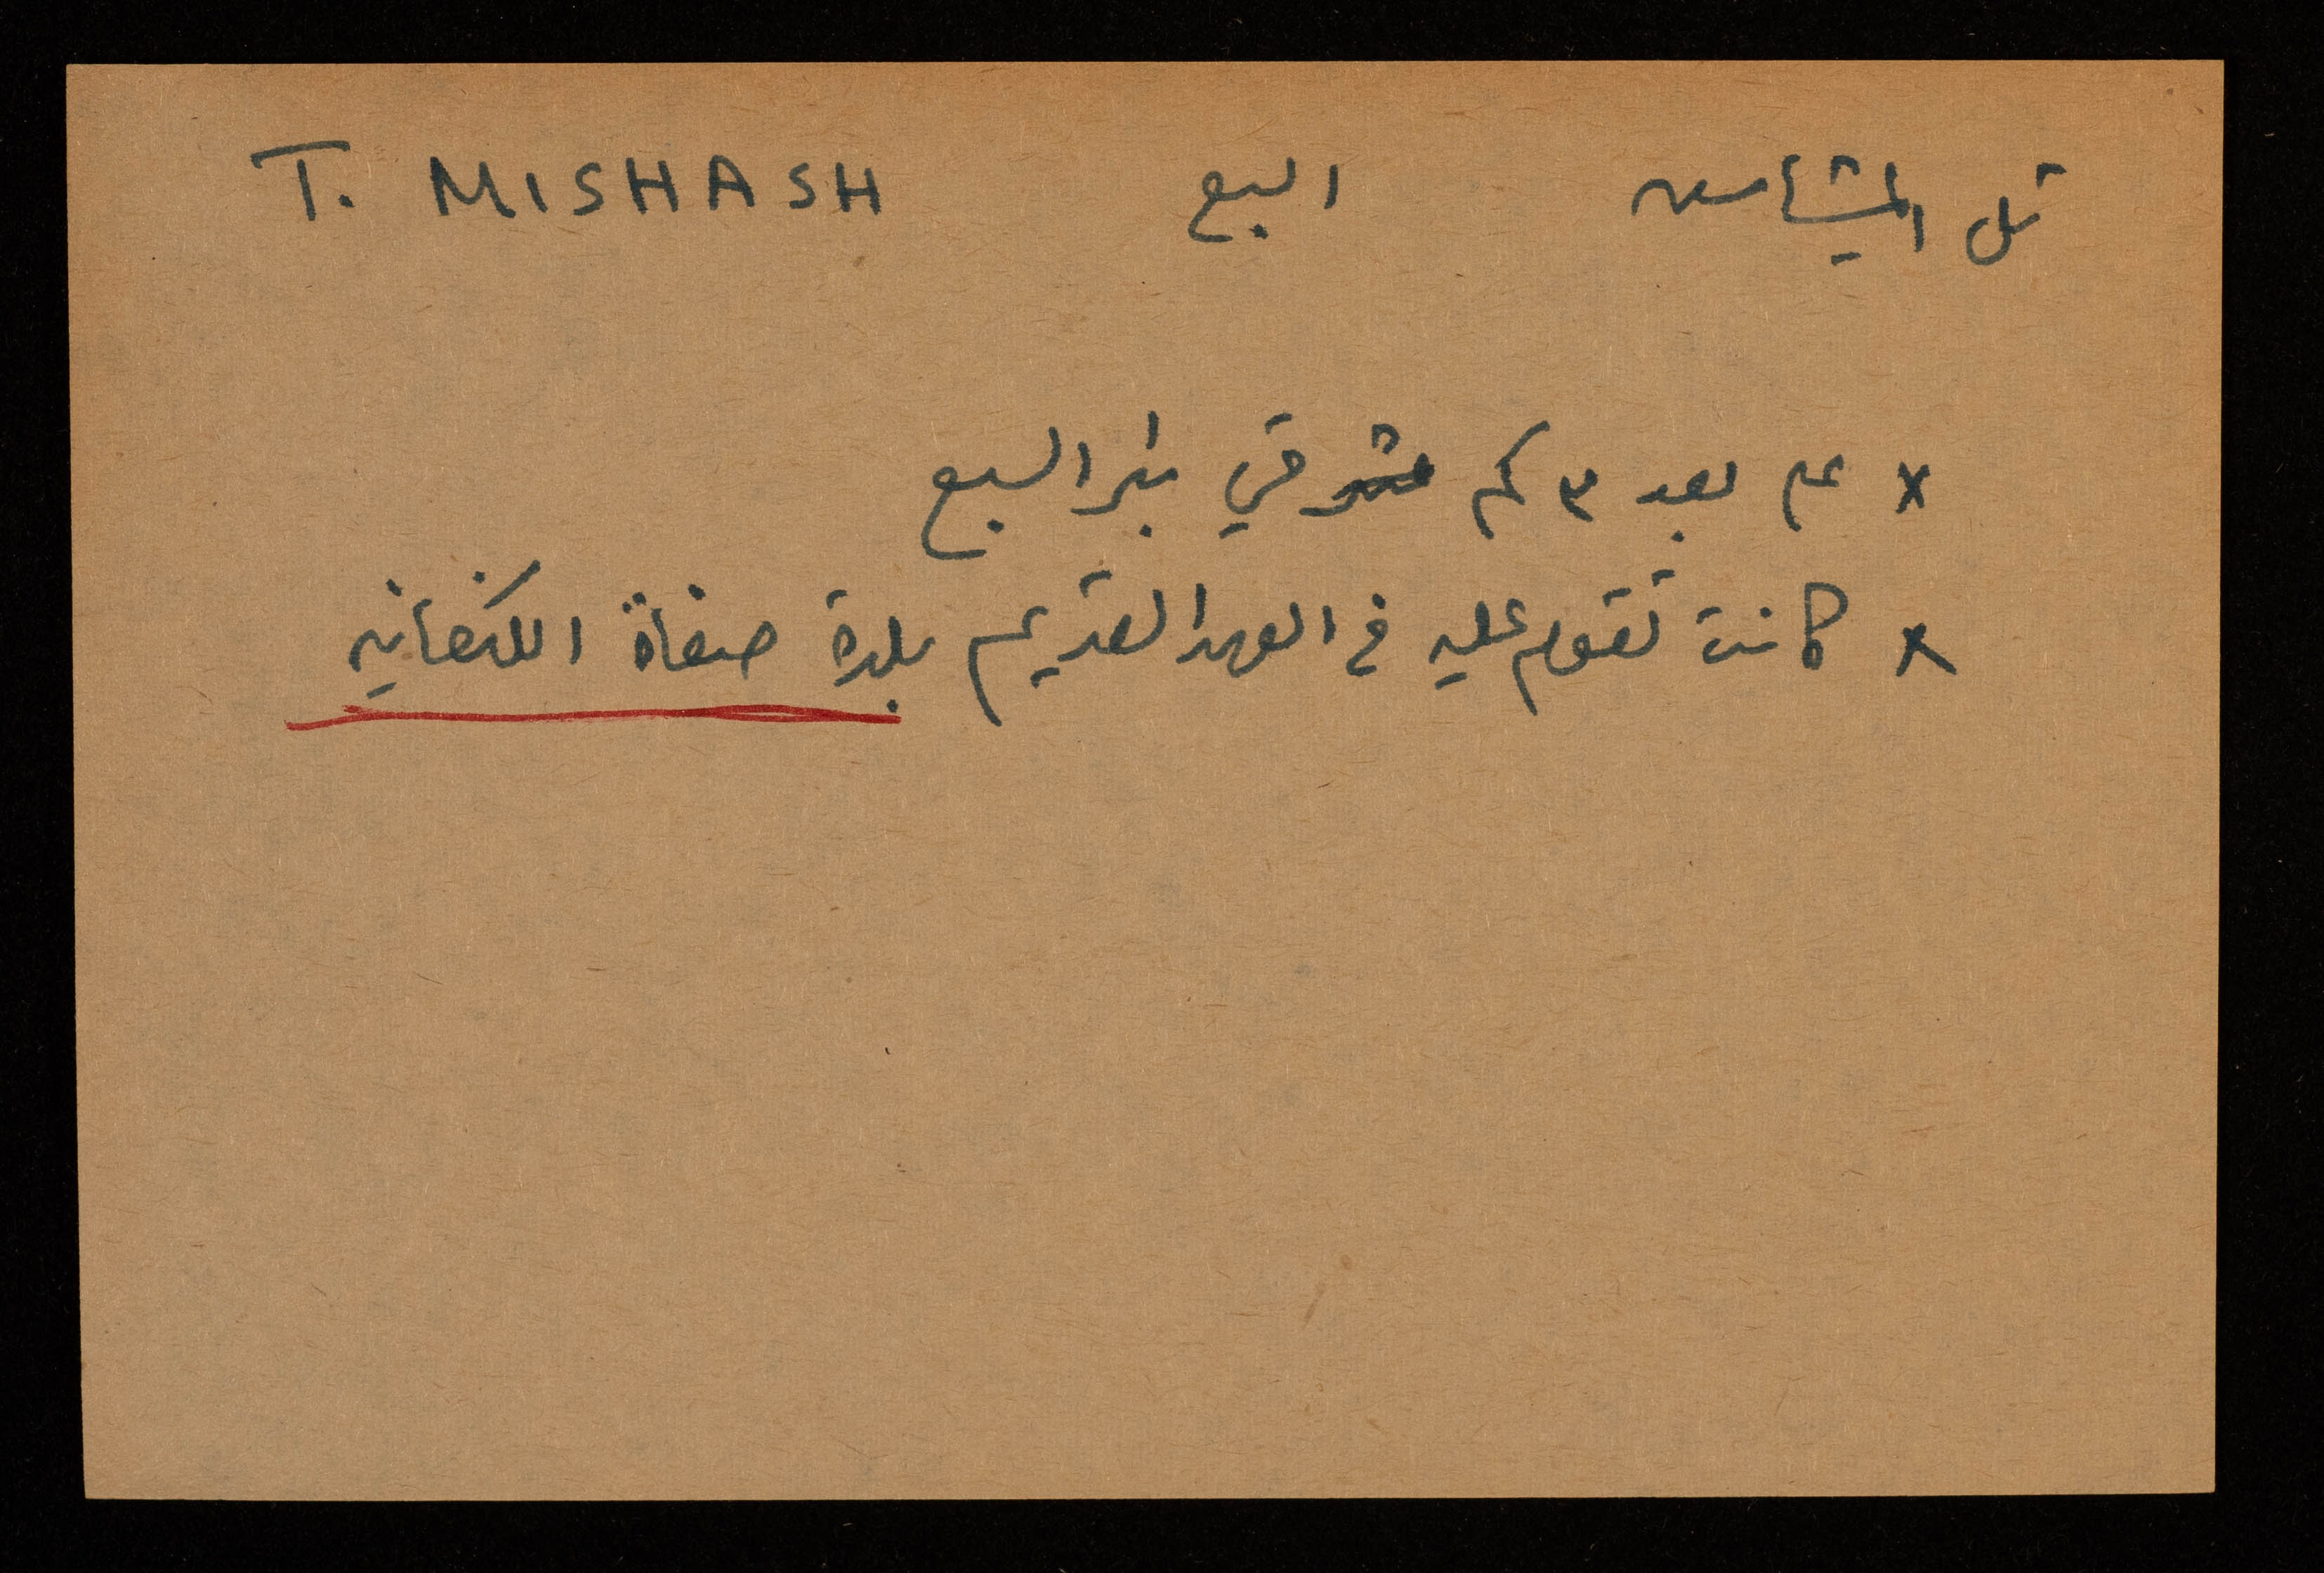 تل المشاش السبع T. MISHASH
x على بعد ٣ كم شرقي بئر السبع
x كانت تقوم عليه في العهد القديم بلدة صفاة الكنعانيه